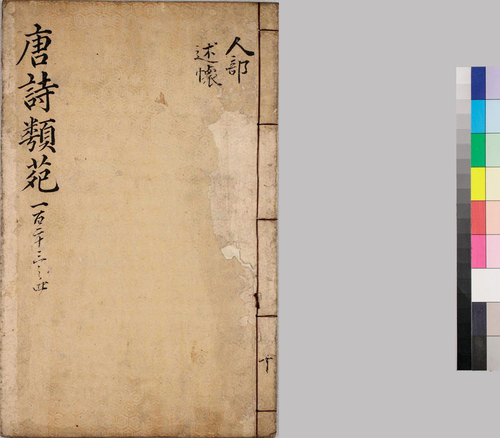 人部
述懷
唐詩類苑
一百二十三之
十